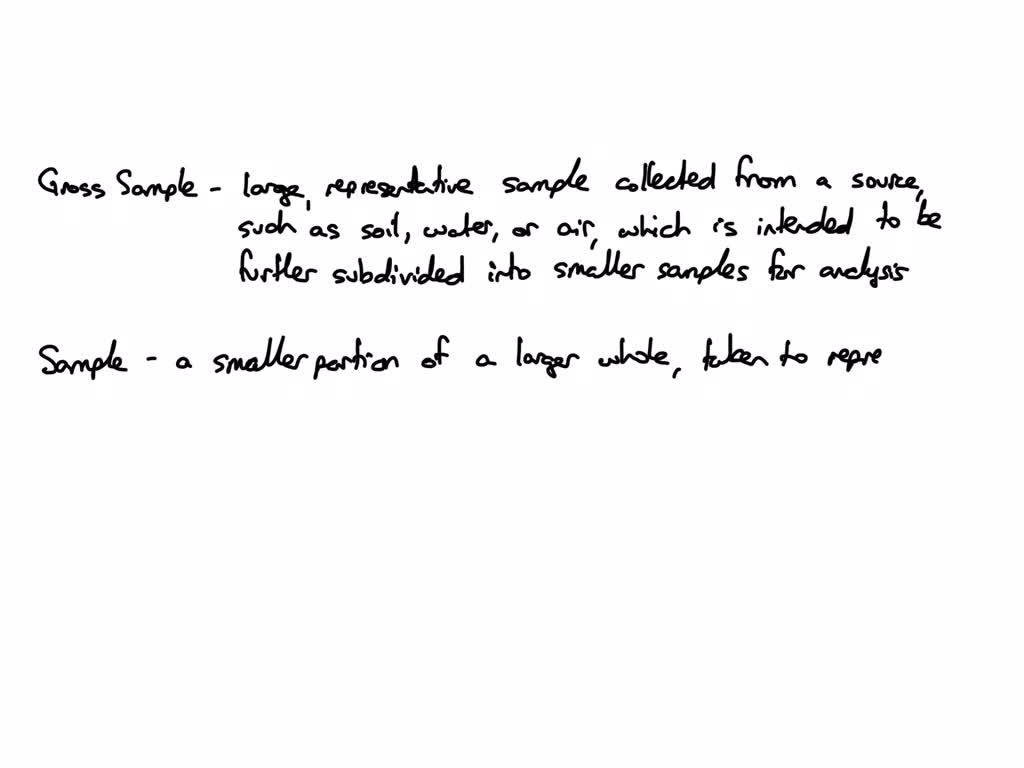 Gross Sample - large, representative sample collected from a source,
such as soil, water, or air, which is intended to be
further subdivided into smaller samples for analysis
Sample - a smaller portion of a larger whole, taken to repre